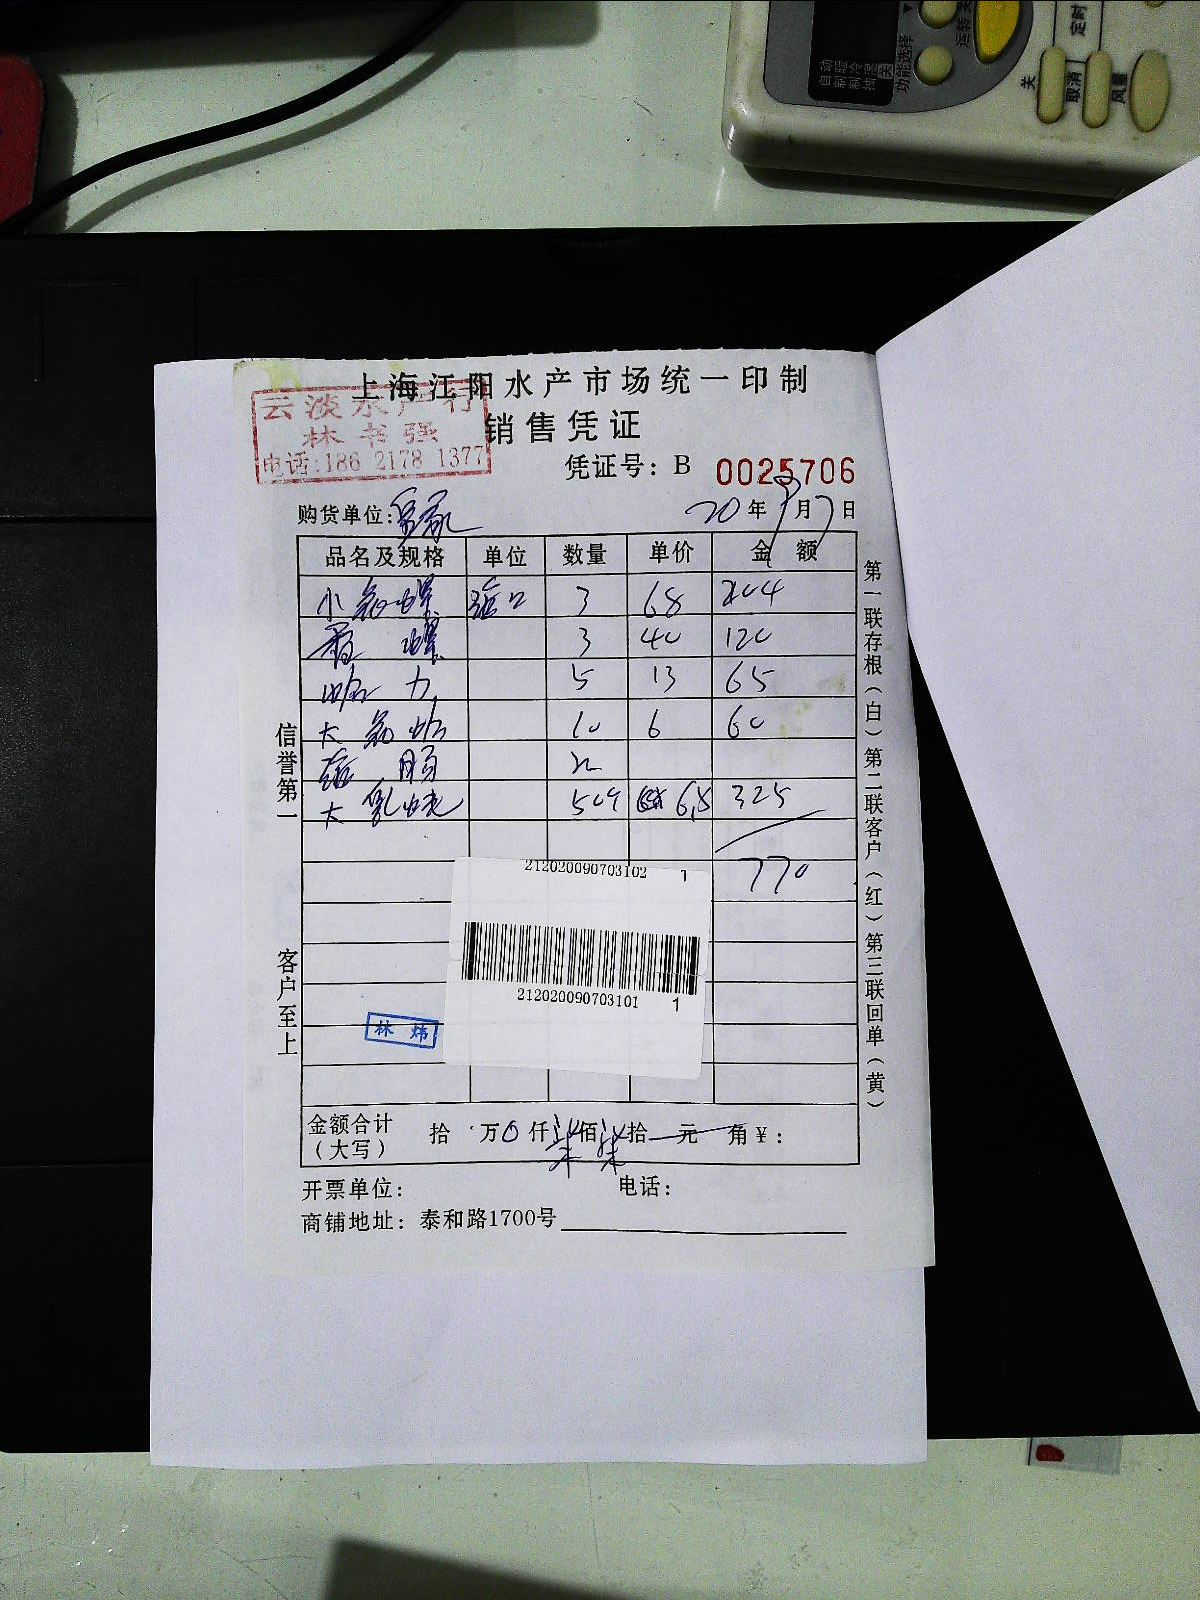 自动
制暖
制冷
抽湿
关
功能选择
运转
关
取消
定时
风量
上海江阳水产市场统一印制
云淡水产行
林书强
电话:186 2178 1377
销售凭证
凭证号: B 0025706
购货单位:
20年9月7日
品名及规格 单位 数量 单价 金额
小 螺 3 68 204
螺 3 40 120
5 13 65
大 10 6 60
肠
大 50 6.5 325
770
212020090703102 1
212020090703101 1
林炜
金额合计(大写) 拾 万0仟柒佰柒拾 元 角¥:
开票单位: 电话:
商铺地址: 泰和路1700号
信誉第一 客户至上
第一联存根(白)第二联客户(红)第三联回单(黄)